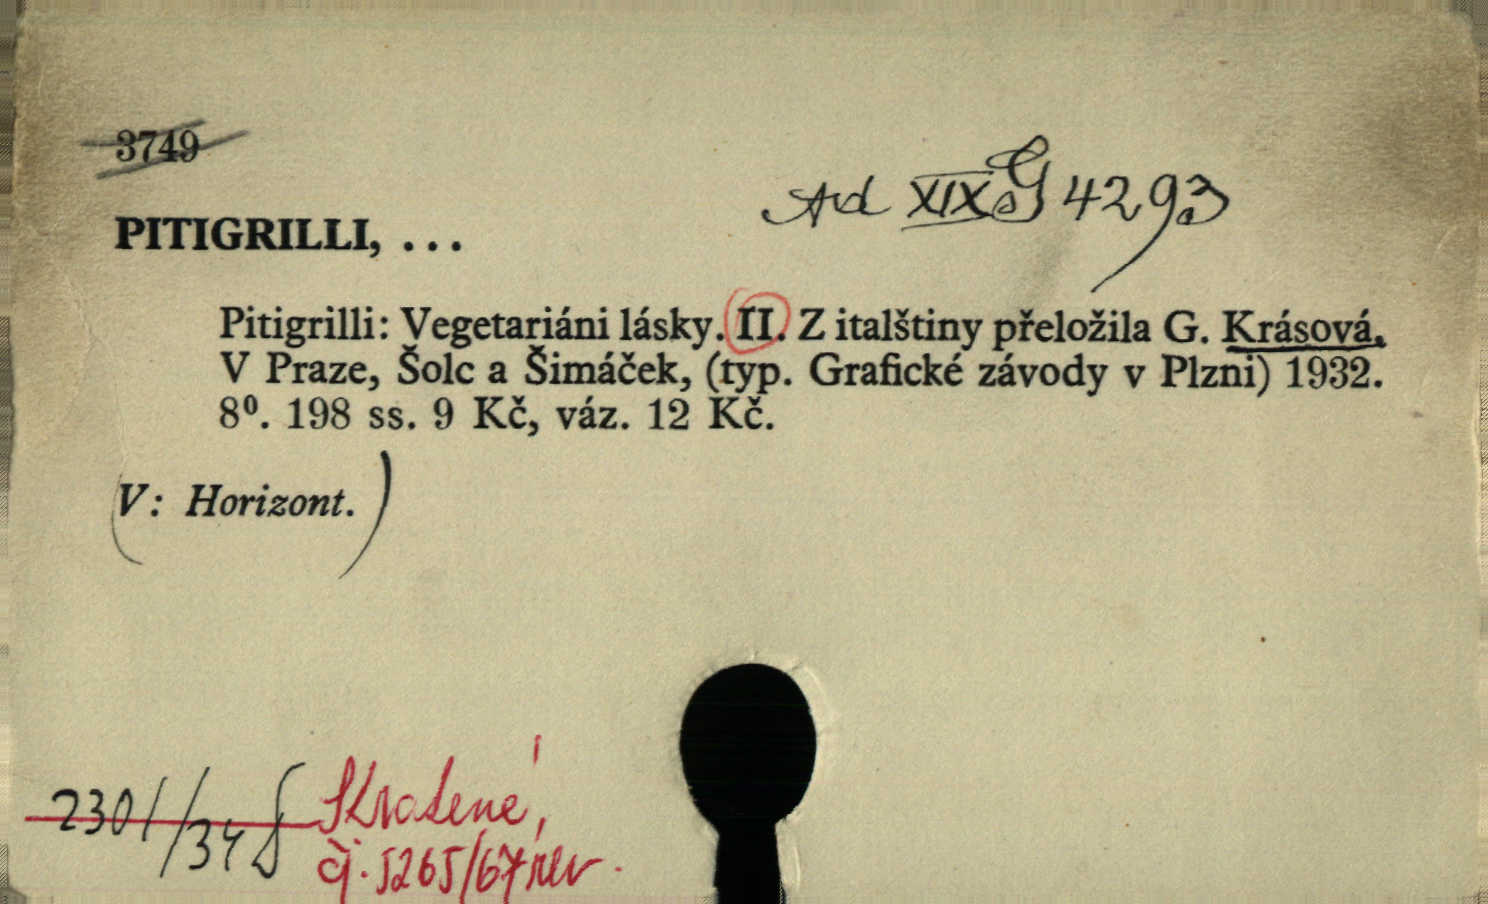 3749
Ad XIX G 4293
PITIGRILLI, ...
Pitigrilli: Vegetariáni lásky. II. Z italštiny přeložila G. Krásová.
V Praze, Šolc a Šimáček, (typ. Grafické závody v Plzni) 1932.
8⁰. 198 ss. 9 Kč, váz. 12 Kč.
(V: Horizont.)
2301/34
čj. 5265/67 rev.